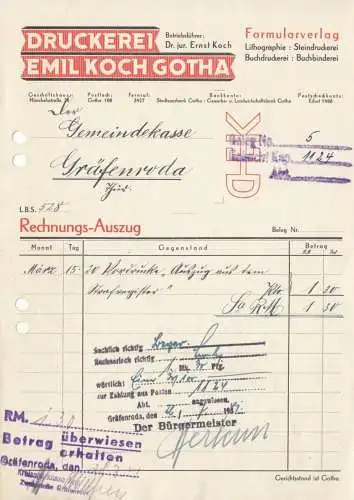 DRUCKEREI
EMIL KOCH GOTHA
Betriebsführer:
Dr. jur. Ernst Koch
Formularverlag
Lithographie : Steindruckerei
Buchdruckerei : Buchbinderei
Geschäftshaus:
Postfach:
Gotha 108
Fernruf:
2427
Bankkonto:
Stadtbank Gotha : Gewerbe- u. Landwirtschaftsbank Gotha
Postscheckkonto:
Erfurt
Der
Gemeindekasse
Gräfenroda
Thür.
Beleg No. 5
1124
Abt.
EKD
L.B.S. 528
Rechnungs-Auszug
Beleg Nr.
Monat
Tag
Gegenstand
Betrag
März 15. 20 Vordrucke „Auszug aus dem
Strafregister" 1 30
1 30
Sachlich richtig
Rechnerisch richtig
Mk. 30 Pfg
wörtlich:
zur Zahlung aus Posten 1124
Abt. angewiesen.
Gräfenroda, den
Der Bürgermeister
RM. 1.30
Betrag überwiesen
erhalten
Gräfenroda, den
Gerichtsstand ist Gotha.